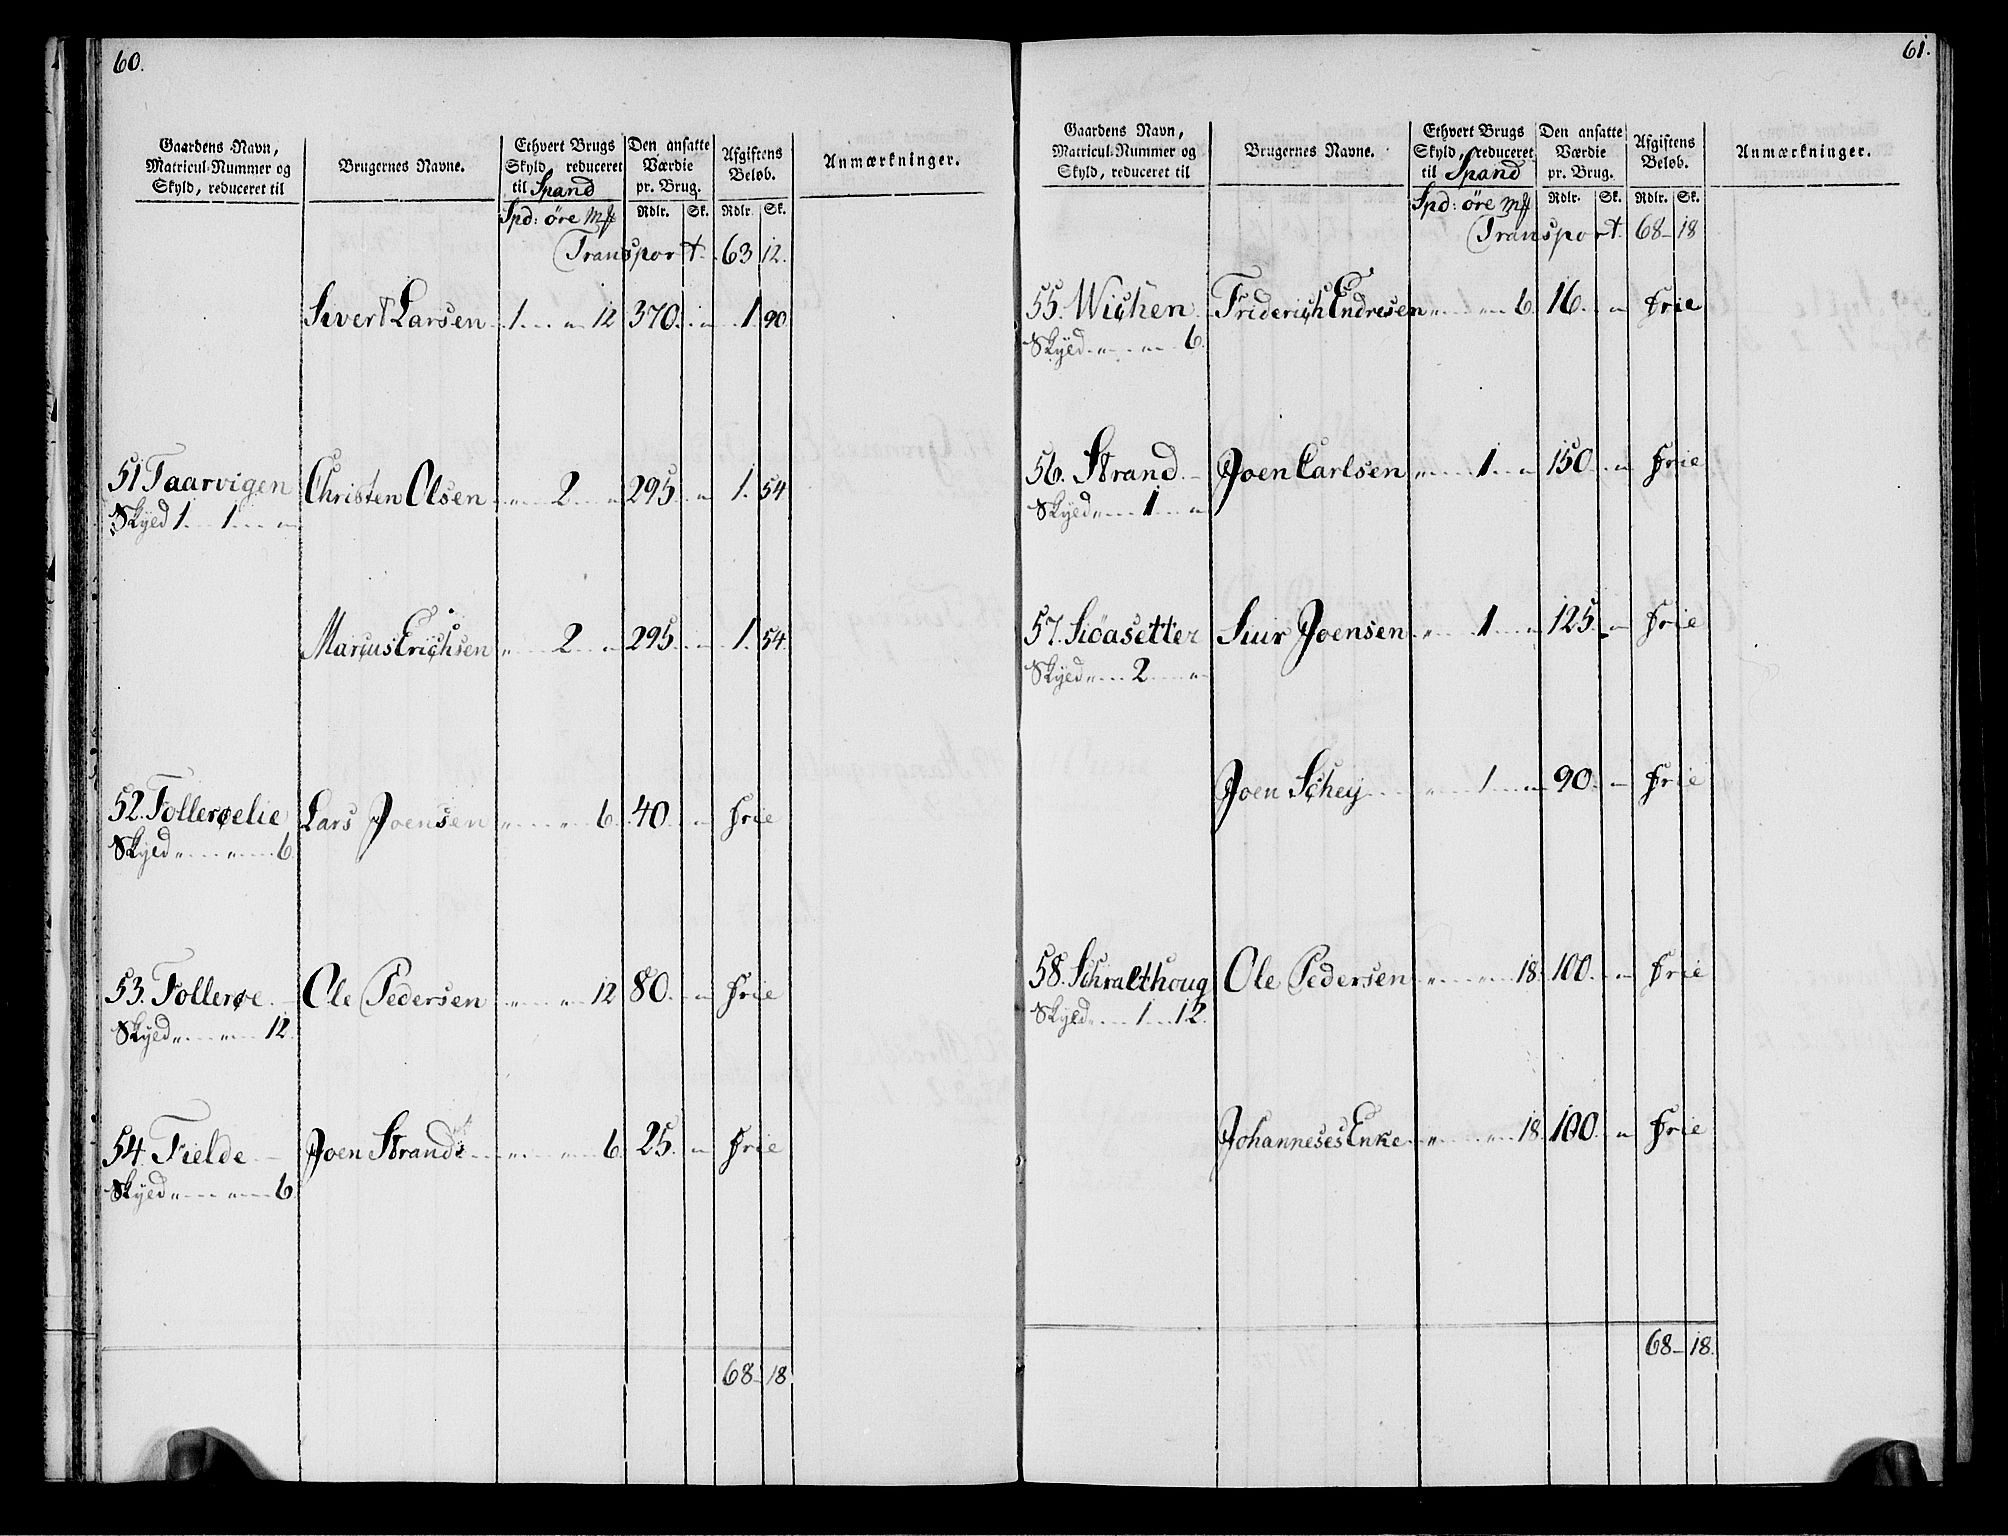 60.
Gaardens Navn, Matricul-Nummer og Skyld, reduceret til | Brugernes Navne. | Ethvert Brugs Skyld, reduceret til Spand | Den ansatte Værdie pr. Brug. | Afgiftens Beløb. | Anmærkninger.
Spd: öre mƒ | Rdlr. | Sk. | Rdlr. | Sk.
Transport 63 12.
Sivert Larsen 1 . . . „ 12 370. „ 1. 90
51 Taarvigen Christen Olsen „ . . 2 . . „ 295. „ 1. 54
Skyld 1. . . 1. . . „
Marcus Erichsen „ . . 2 . . „ 295. „ 1. 54.
52. Follerøelie Lars Joensen „ . . „ . . 6. 40. „ Frie
Skyld „ . . . „ . . . 6.
53. Follerøe. Ole Pedersen „ . . „ 12 80. „ Frie
Skyld „ . . . „ . . . 12.
54. Fielde Joen Strand „ . . „ . . 6 25. „ Frie
Skyld „ . . . „ . . . 6.
68 – 18
61.
Gaardens Navn, Matricul-Nummer og Skyld, reduceret til | Brugernes Navne. | Ethvert Brugs Skyld, reduceret til Spand | Den ansatte Værdie pr. Brug. | Afgiftens Beløb. | Anmærkninger.
Spd: öre mƒ | Rdlr. | Sk. | Rdlr. | Sk.
Transport. 68 – 18
55. Wichen. Friderich Endresen „ . . „ . . 6. 16. „ Frie
Skyld „ . . . „ . . . 6.
56. Strand. Joen Carlsen „ . . 1. . „ 150. „ Frie
Skyld „ . . . 1. . . „
57. Siöasetter Siur Joensen „ . . 1 . . „ 125. „ Frie
Skyld „ . . . 2 . . . „
Joen Schey „ . . 1. . „ 90. „ Frie
58. Schralthoug Ole Pedersen „ . . „ . . 18. 100. „ Frie
Skyld „ . . . 1 . . 12.
Johanneses Enke „ . . „ 18. 100. „ Frie
68 – 18.